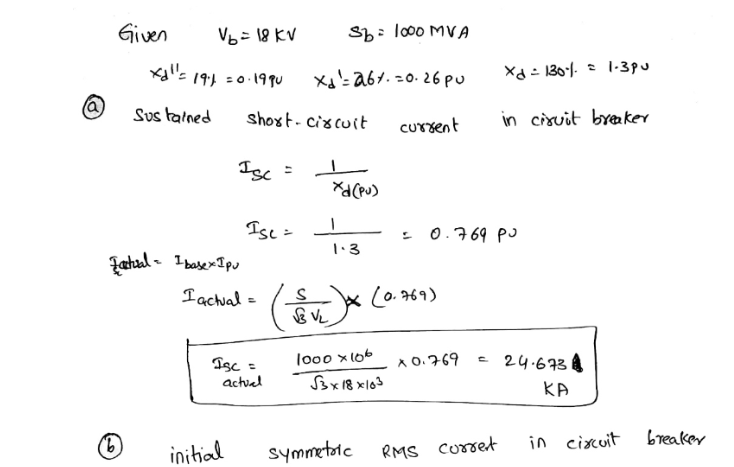 Given Vb = 18 KV Sb = 1000 MVA
Xd'' = 19% = 0.19PU Xd' = 26% = 0.26 PU Xd = 130% = 1.3PU
(a) Sustained short-circuit current in ciruit breaker
ISC = 1 / Xd(PU)
ISC = 1 / 1.3 = 0.769 PU
Iactual = Ibase × Ipu
SC
Iactual = (S / √3 VL) × (0.769)
ISC actual = 1000 × 10^6 / √3 × 18 × 10^3 × 0.769 = 24.673 KA
(b) initial symmetric RMS current in circuit breaker